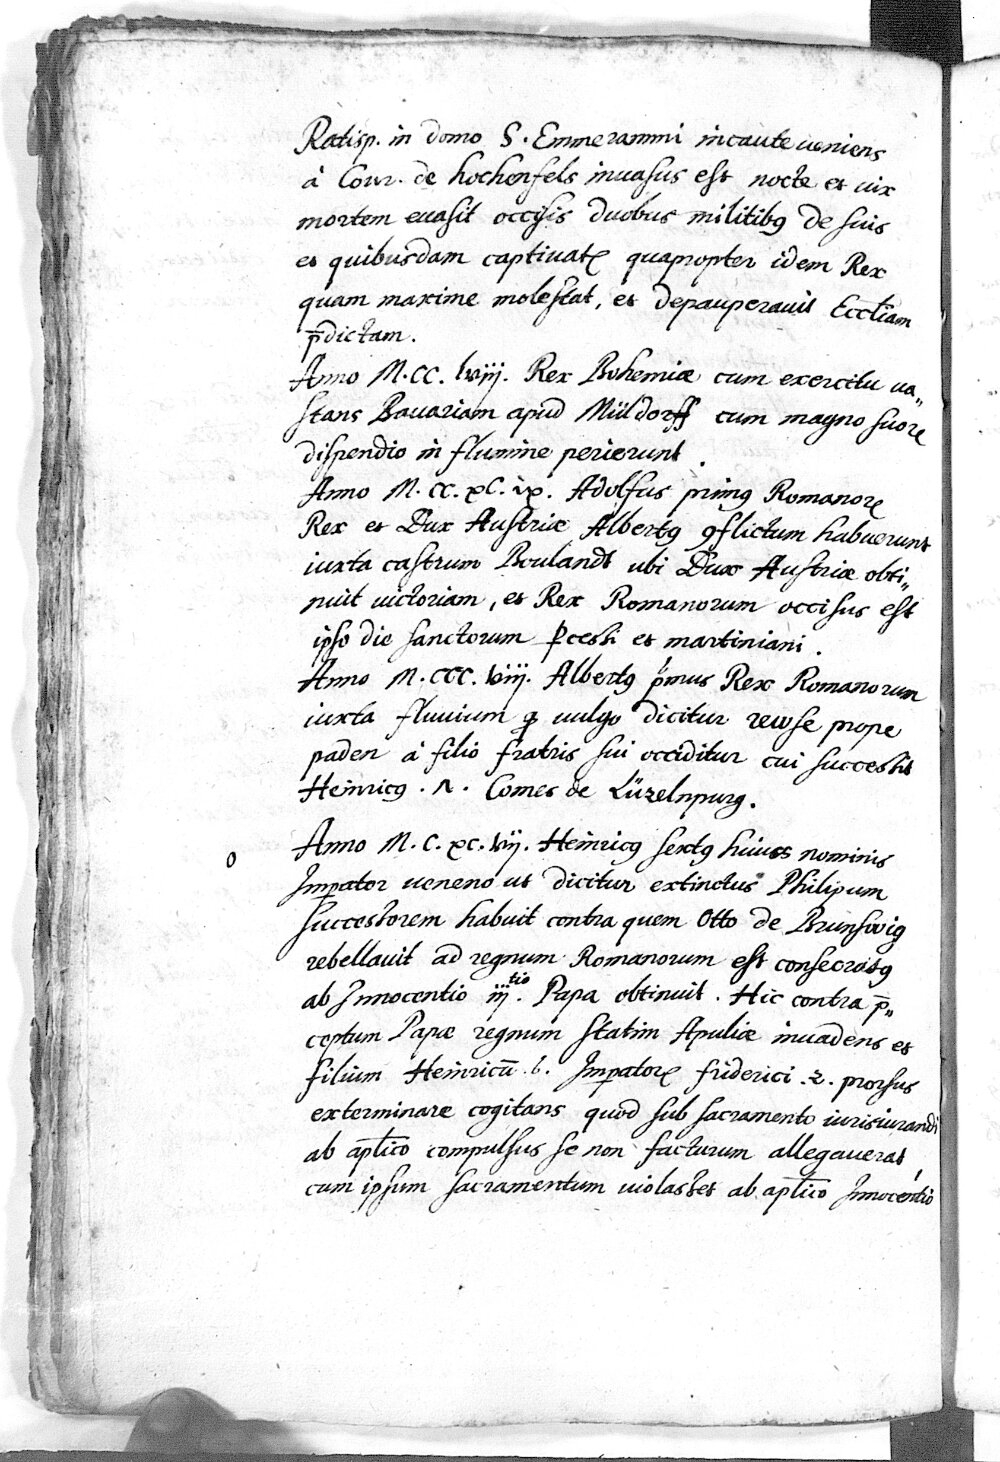 Ratisp. in domo S. Emmerammi incaute ueniens
à Conr. de hochenfels inuasus est nocte et uix
mortem euasit occisis duobus militibꝯ de suis
et quibusdam captiuatꝭ quapropter idem Rex
quam maxime molestat, et depauperauit Eccl̄iam
p̄dictam.
Anno M.CC. lviij. Rex Bohemiæ cum exercitu ua„
stans Bauariam apud Müldorff cum magno suoꝝ
dispendio in flumine perierunt.
Anno M.CC.XC.ix. Adolfus primꝯ Romanoꝝ
Rex et Dux Austriæ Albertꝯ ꝯflictum habuerunt
iuxta castrum Boulandt ubi Dux Austriæ obti„
nuit uictoriam, et Rex Romanorum occisus est
ipso die sanctorum ꝓcessi et martiniani.
Anno M.CCC.viij. Albertꝯ p̄mus Rex Romanorum
iuxta fluuium ꝗ uulgo dicitur rewse prope
paden à filio fratris sui occiditur cui successit
Heinricꝯ . Λ . Comes de Lüzelnpurg.
o Anno M.C.XC.vij. Heinricꝯ sextꝯ huius nominis
Imꝑator ueneno ut dicitur extinctus Philipum
successorem habuit contra quem Otto de Brunswig
rebellauit ad regnum Romanorum est consecratꝯ
ab Innocentio iij.tio Papa obtinuit. Hic contra p̄„
ceptum Papæ regnum statim Apuliæ inuadens et
filium Heinricū .6. Imꝑatorꝭ friderici .2. prorsus
exterminare cogitans quod sub sacramento iurisiurandi
ab ap̄lico compulsus se non facturum allegauerat,
cum ipsum sacramentum uiolasset ab ap̄lico Innocentio